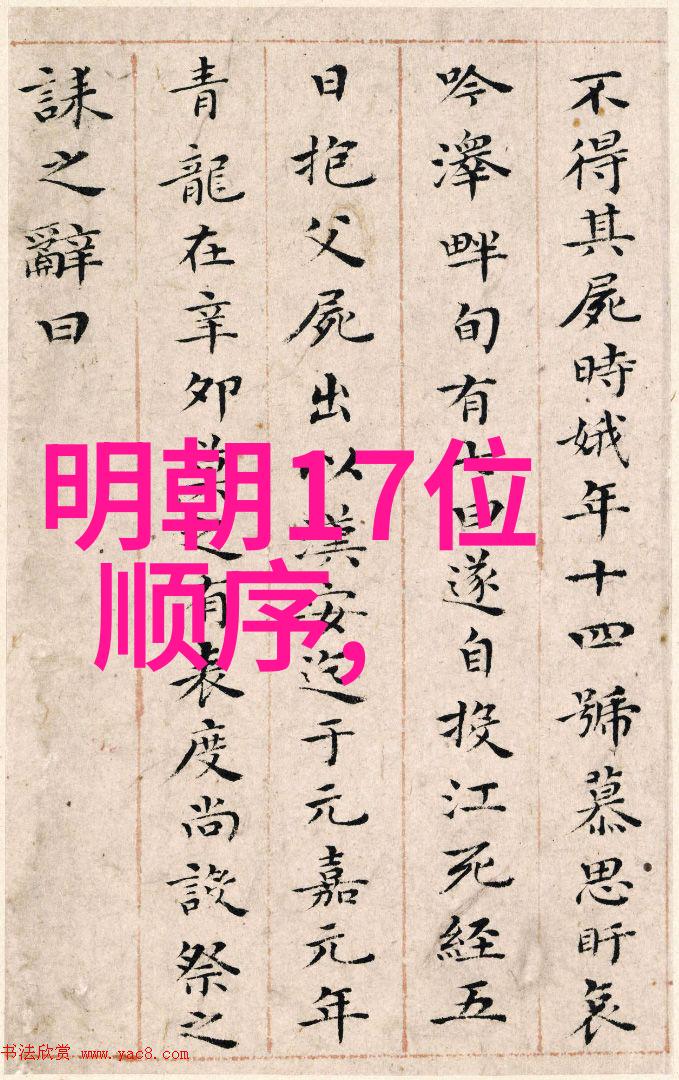 不得其屍時娥年十四號慕思盱哀
吟澤畔旬有七日遂自投江死經五
日抱父屍出以漢安迄于元嘉元年
青龍在辛卯莫之有表度尚設祭之
誄之辭曰
明朝17位
顺序,
书法欣赏 www.yac8.com